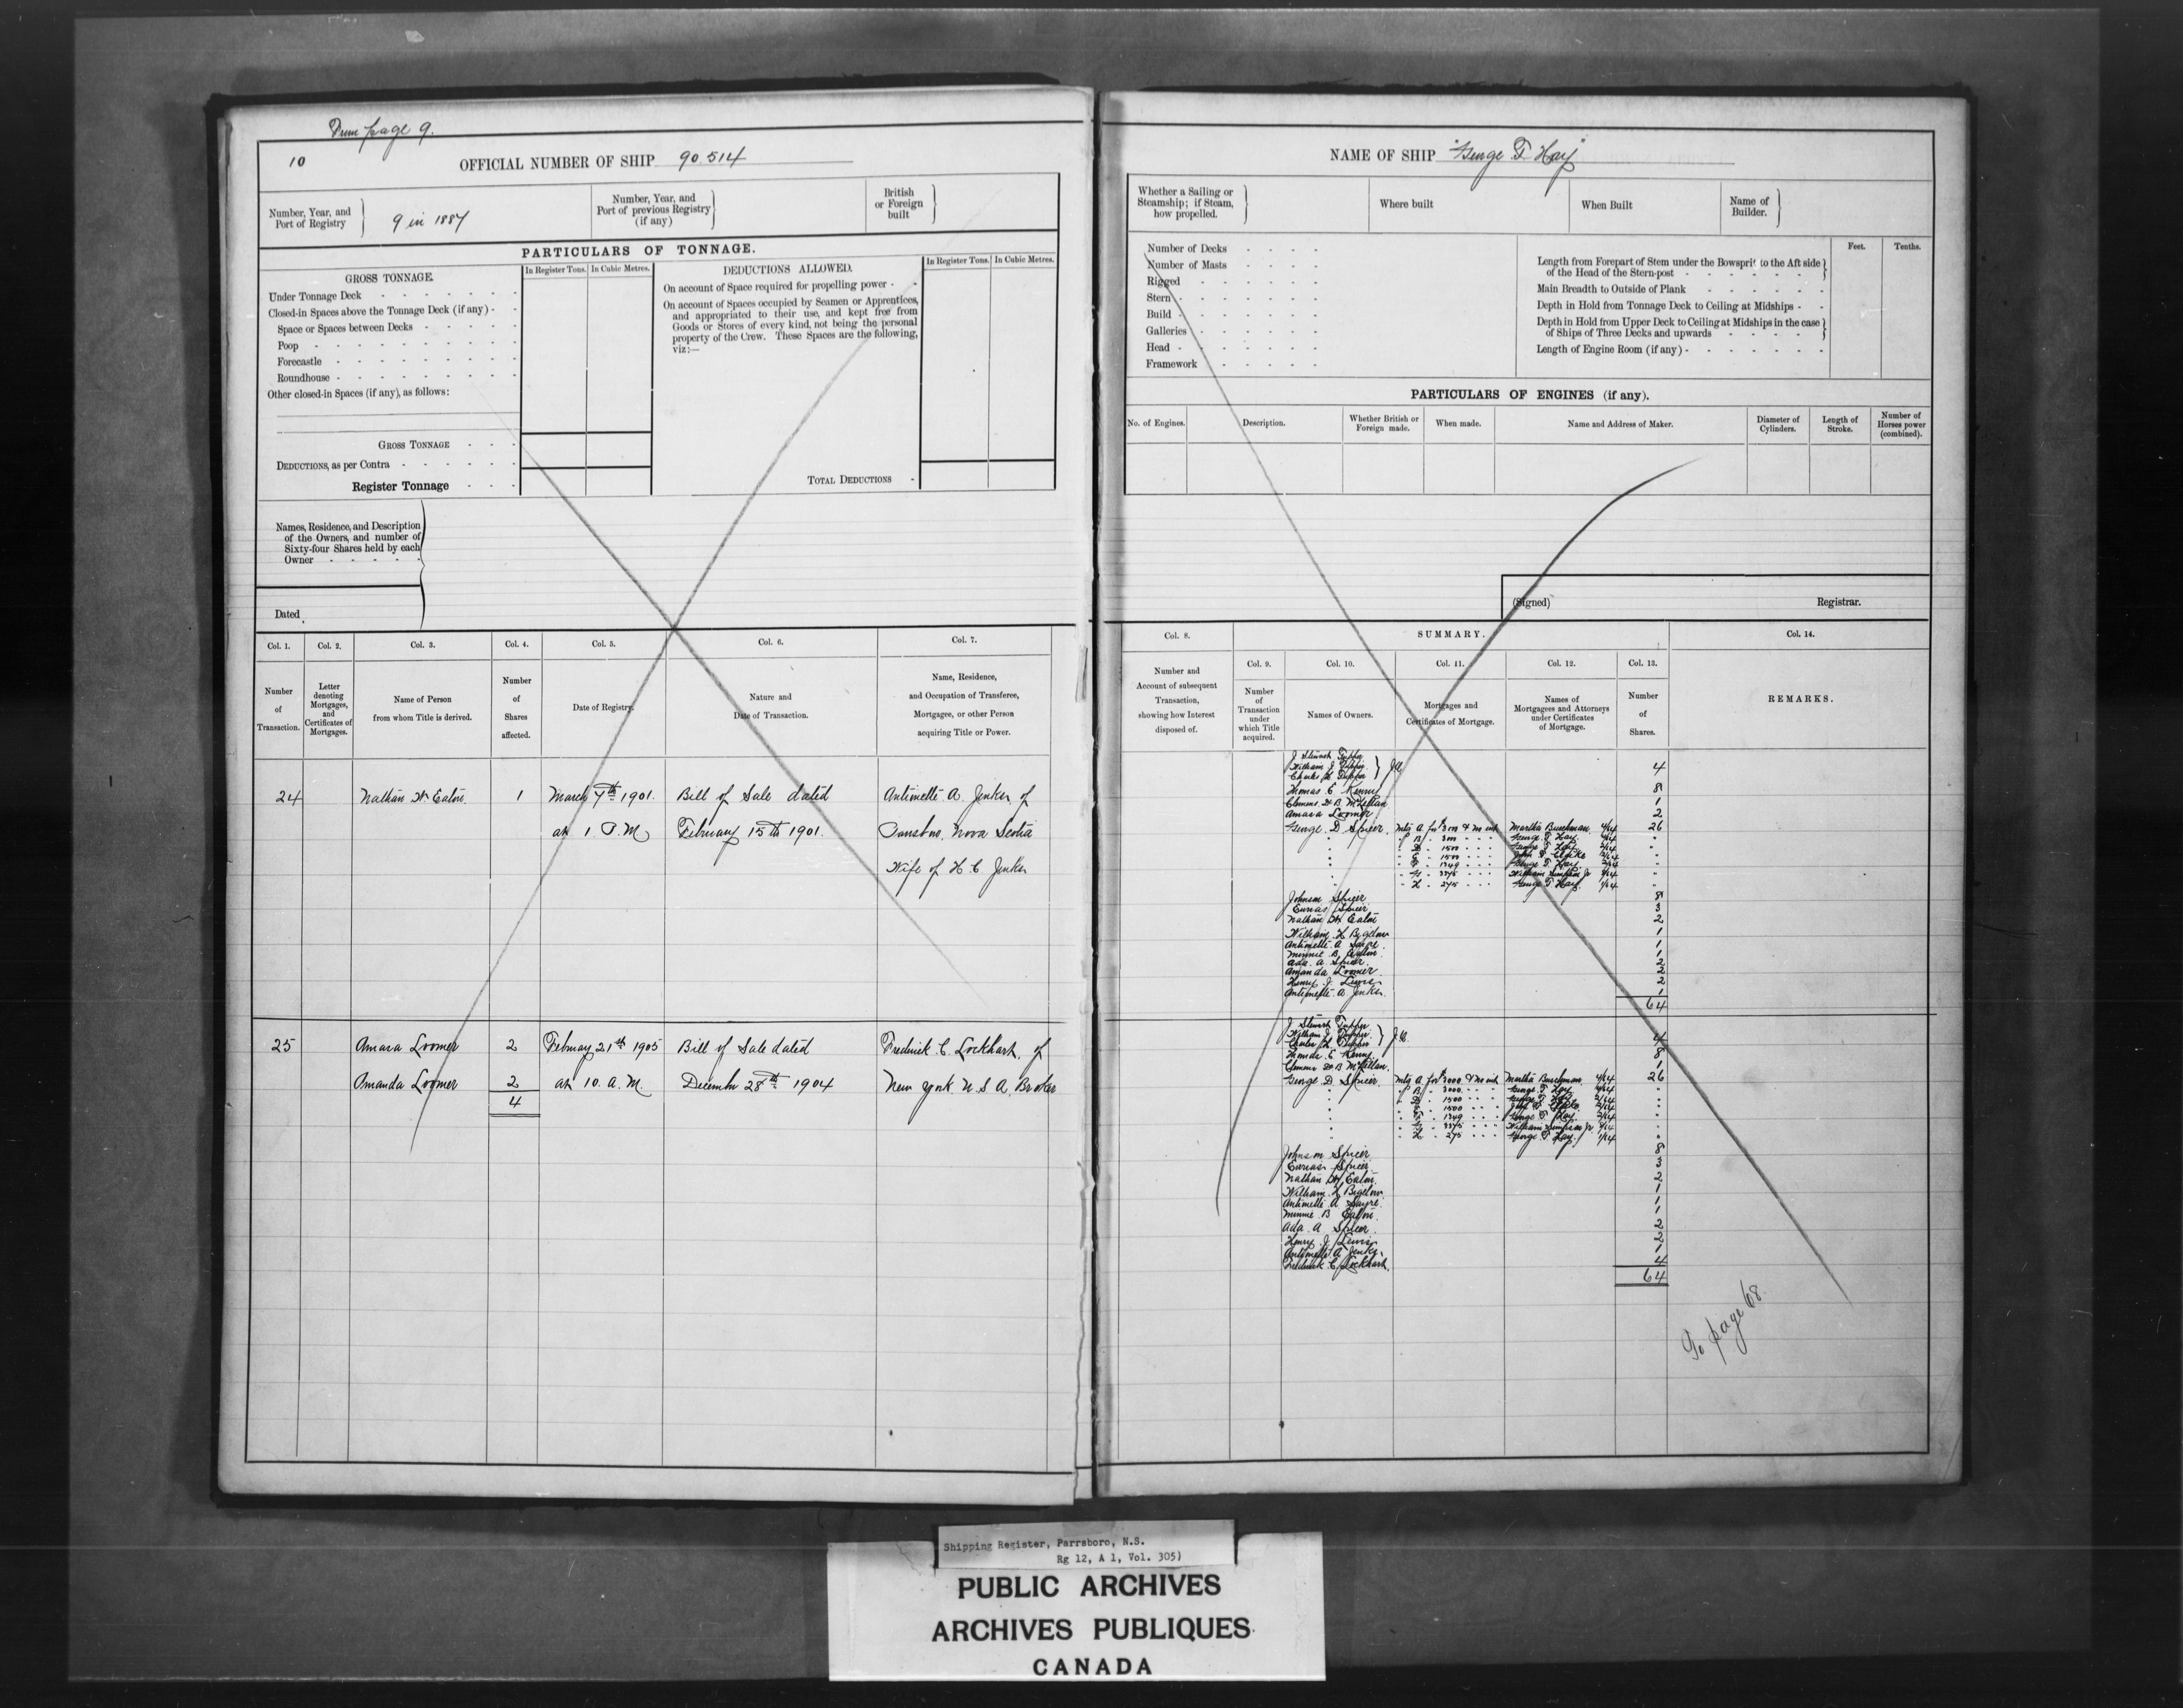 From page 9.
10
OFFICIAL NUMBER OF SHIP 90.514
Number, Year, and
Port of Registry
9 in 1887
Number, Year, and
Port of previous Registry
(if any)
British
or Foreign
built
PARTICULARS OF TONNAGE.
GROSS TONNAGE.
In Register Tons. In Cubic Metres.
Under Tonnage Deck
Closed-in Spaces above the Tonnage Deck (if any)
Space or Spaces between Decks
Poop
Forecastle
Roundhouse
Other closed-in Spaces (if any), as follows:
GROSS TONNAGE
DEDUCTIONS, as per Contra
Register Tonnage
DEDUCTIONS ALLOWED.
In Register Tons. In Cubic Metres.
On account of Space required for propelling power
On account of Spaces occupied by Seamen or Apprentices,
and appropriated to their use, and kept free from
Goods or Stores of every kind, not being the personal
property of the Crew. These Spaces are the following,
viz:—
TOTAL DEDUCTIONS
Names, Residence, and Description
of the Owners, and number of
Sixty-four Shares held by each
Owner
Dated
Col. 1. Col. 2. Col. 3. Col. 4. Col. 5. Col. 6. Col. 7.
Number
of
Transaction.
Letter
denoting
Mortgages,
and
Certificates of
Mortgages.
Name of Person
from whom Title is derived.
Number
of
Shares
affected.
Date of Registry.
Nature and
Date of Transaction.
Name, Residence,
and Occupation of Transferee,
Mortgagee, or other Person
acquiring Title or Power.
24 Nathan W Eaton 1 March 7th 1901. Bill of Sale dated Antinette A. Jenks of
at 1 P.M February 15th 1901. Parrsboro, Nova Scotia
Wife of H C Jenks
25 Amasa Loomer 2 February 21st 1905 Bill of Sale dated Frederick C. Lockhart, of
Amanda Loomer 2 at 10. A.M. December 28th 1904 New York U S A, Broker
4
NAME OF SHIP "George T. Hay"
Whether a Sailing or
Steamship; if Steam,
how propelled.
Where built
When Built
Name of
Builder.
Number of Decks
Number of Masts
Rigged
Stern
Build
Galleries
Head
Framework
Feet. Tenths.
Length from Forepart of Stem under the Bowsprit to the Aft side
of the Head of the Stern-post
Main Breadth to Outside of Plank
Depth in Hold from Tonnage Deck to Ceiling at Midships
Depth in Hold from Upper Deck to Ceiling at Midships in the case
of Ships of Three Decks and upwards
Length of Engine Room (if any)
PARTICULARS OF ENGINES (if any).
No. of Engines.
Description.
Whether British or
Foreign made.
When made.
Name and Address of Maker.
Diameter of
Cylinders.
Length of
Stroke.
Number of
Horses power
(combined).
(Signed) Registrar.
Col. 8. SUMMARY. Col. 14.
Col. 9. Col. 10. Col. 11. Col. 12. Col. 13.
Number and
Account of subsequent
Transaction,
showing how Interest
disposed of.
Number
of
Transaction
under
which Title
acquired.
Names of Owners.
Mortgages and
Certificates of Mortgage.
Names of
Mortgagees and Attorneys
under Certificates
of Mortgage.
Number
of
Shares.
REMARKS.
J Stewart Tupper
William J Tupper
Charles H Tupper 4
Thomas E Kenny 8
Clemens W B McLellan 1
Amasa Loomer 2
George D Spicer. Martha Buschman 4/64 26
George T. Hay
1500 George T Hay
1500
1349 George T Hay
3375 William Simpson Jr
H 275 George T Hay 1/64
Johnson Spicer 8
Eurias Spicer 3
Nathan W Eaton 2
William H Bigelow 1
Antinette A Sayre 1
Minnie B. Eaton 1
Ada A Spicer 2
Amanda Loomer 2
Henry J Lewis 2
Antinette A Jenks 1
64
J Stewart Tupper
William J Tupper
Charles H Tupper 4
Thomas E Kenny 8
Clemens W B McLellan 1
George D Spicer. Mtg A for $3000 & Martha Buschman 4/64 26
B 3000 George T Hay
1500 George T Hay
1500
1349 George T Hay
3375 William Simpson Jr
H 275 George T Hay 1/64
Johnson Spicer 8
Eurias Spicer 3
Nathan W Eaton 2
William H Bigelow 1
Antinette A Sayre 1
Minnie B Eaton 1
Ada A Spicer 2
Henry J Lewis 2
Antinette A Jenks 1
Frederick C Lockhart 4
64
To page 68.
Shipping Register, Parrsboro, N.S.
Rg 12, A 1, Vol. 305)
PUBLIC ARCHIVES
ARCHIVES PUBLIQUES
CANADA